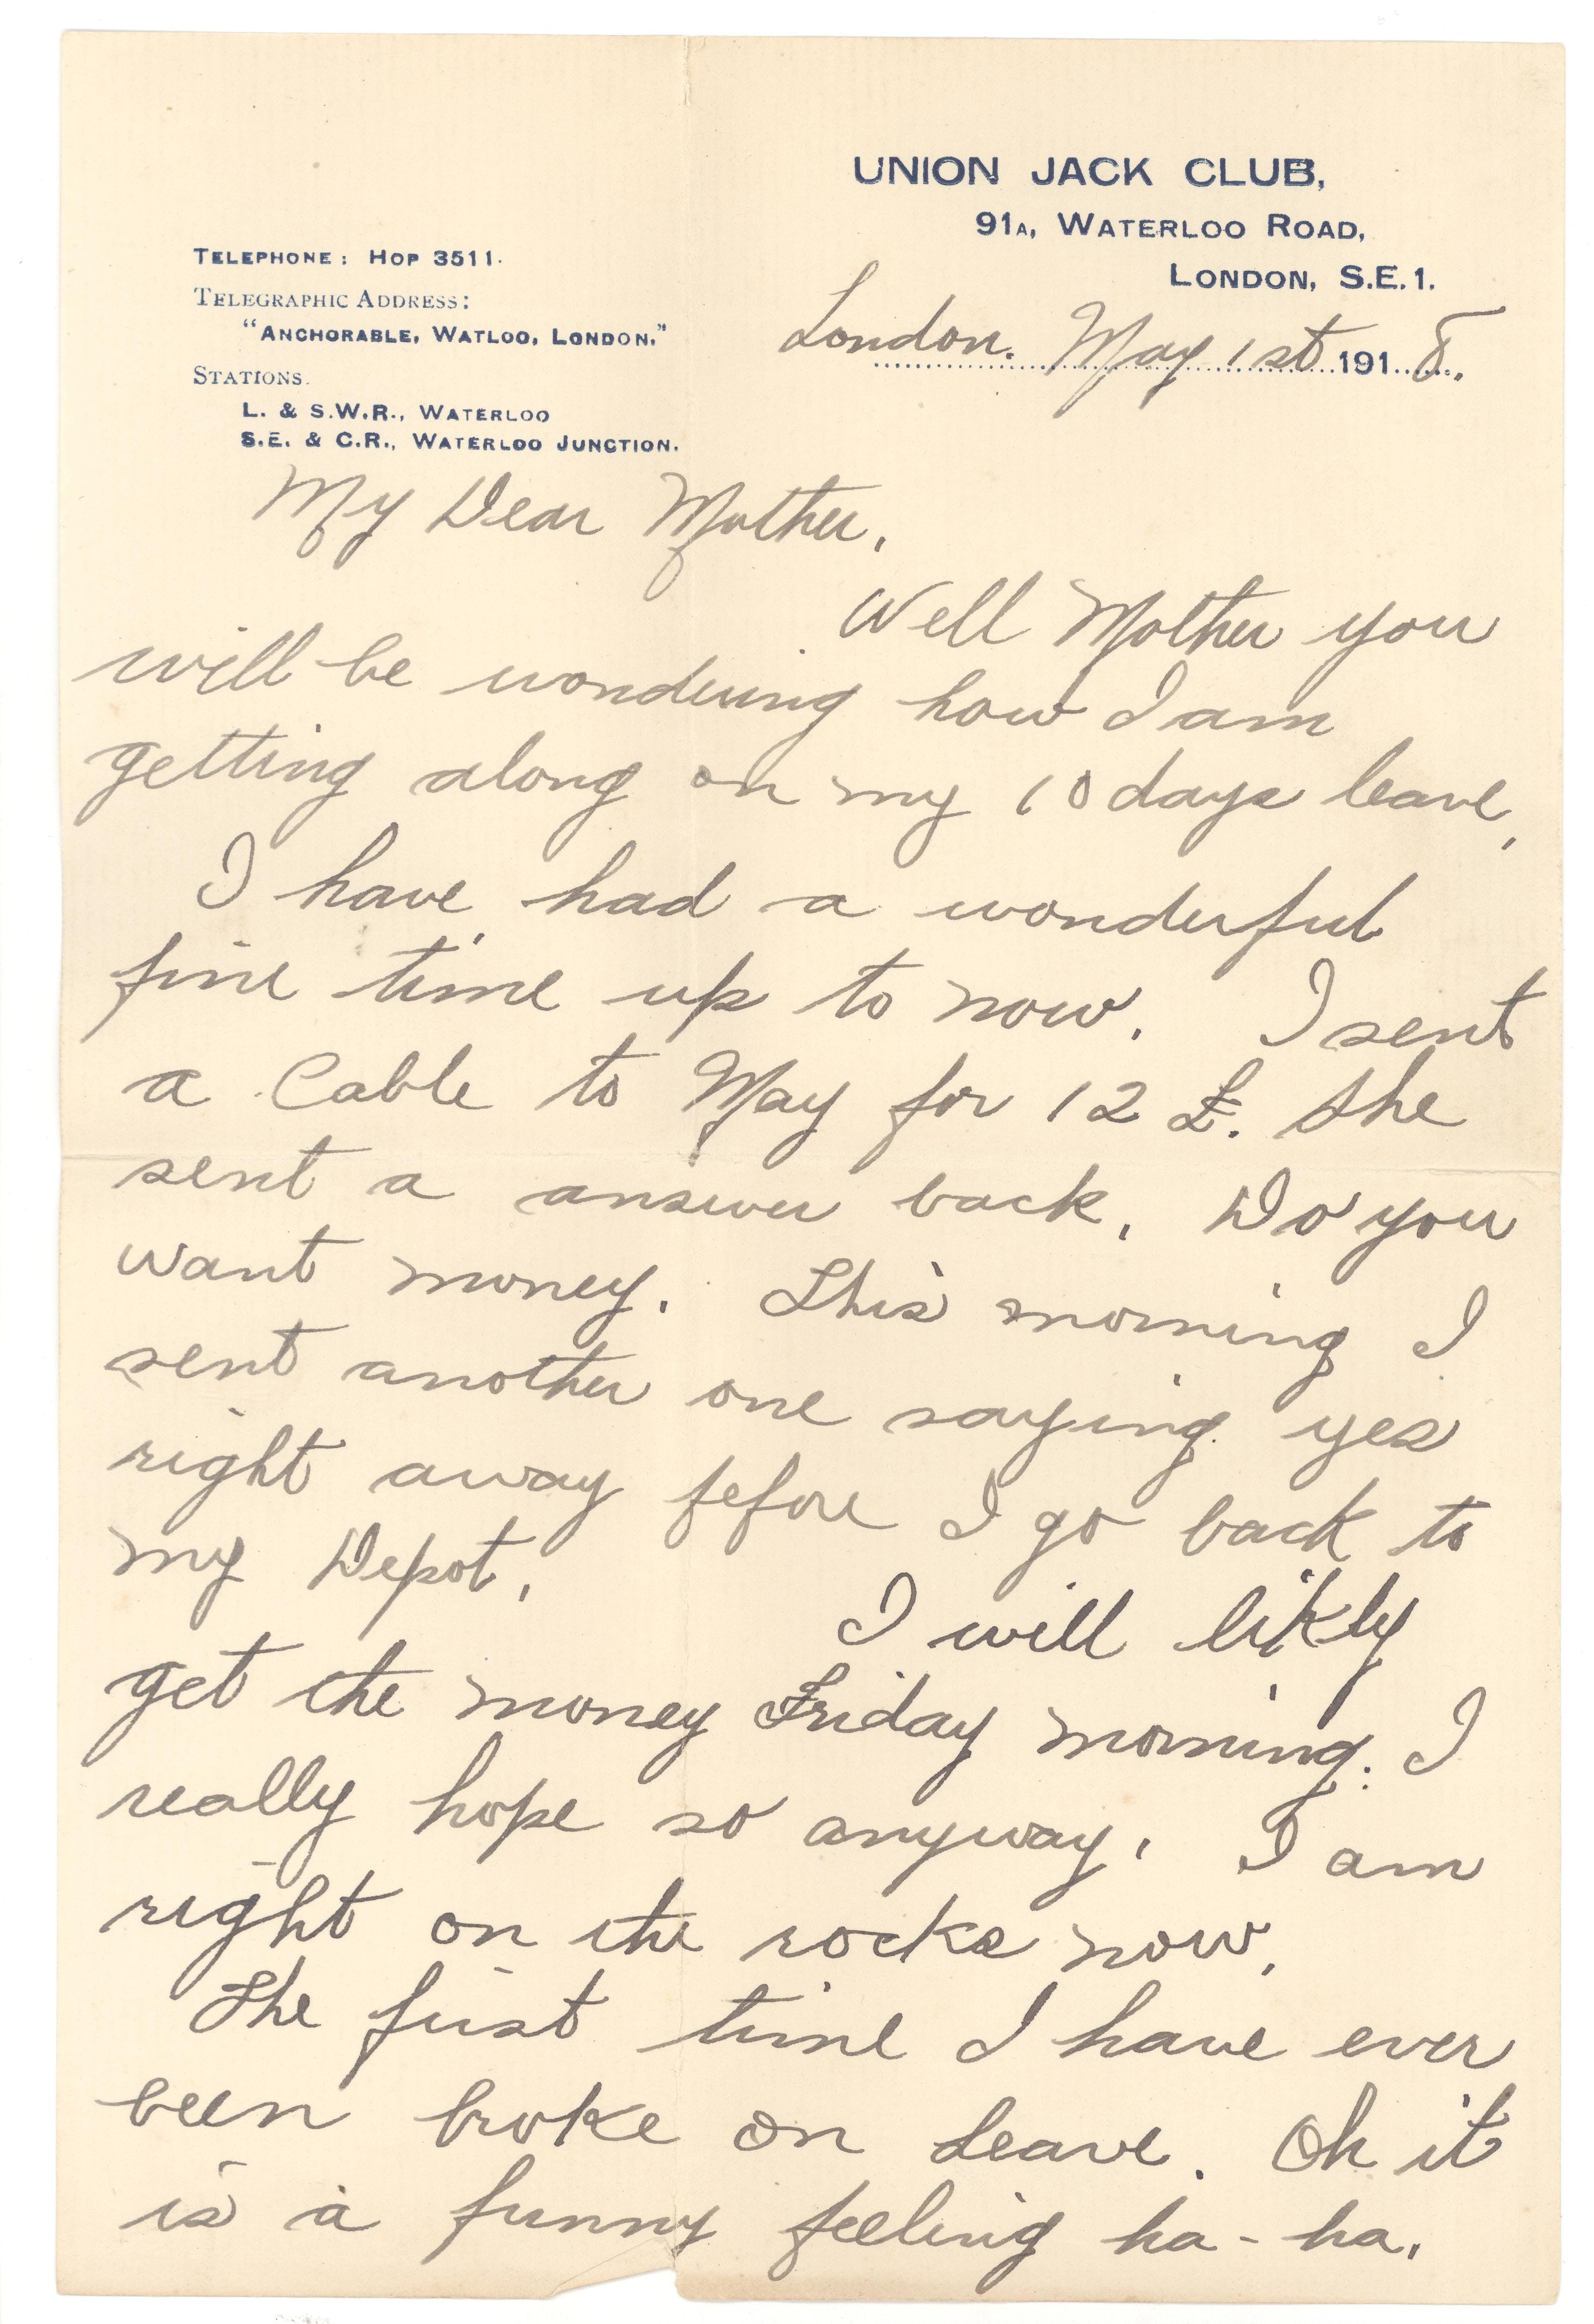 UNION JACK CLUB,
91A, WATERLOO ROAD,
LONDON, S.E.1.
TELEPHONE: HOP 3511.
TELEGRAPHIC ADDRESS:
"ANCHORABLE, WATLOO, LONDON."
STATIONS.
L. & S.W.R., WATERLOO
S.E. & C.R., WATERLOO JUNCTION.
London. May 1st 1918.
My Dear Mother,
Well Mother you
will be wondering how I am
getting along on my 10 days leave,
I have had a wonderful
fine time up to now. I sent
a Cable to May for 12 £. She
sent a answer back, Do you
want money. This morning I
sent another one saying yes
right away fefore I go back to
my Depot,
I will likly
get the money Friday morning. I
really hope so anyway. I am
right on the rocks now,
The first time I have ever
been broke on Leave. Oh it
is a funny feeling ha-ha.